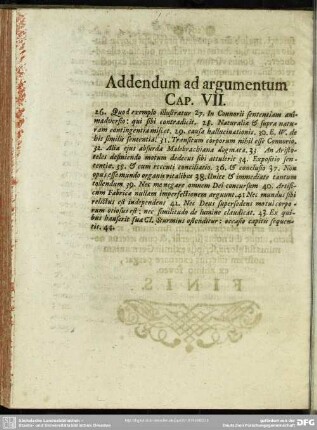 Addendum ad argumentum
CAP. VII.
26. Quod exemplo illustratur 27. In Connorii sententiam ani-
madversio: qui sibi contradicit, 28. Naturalia & supra natu-
ram contingentia miscet. 29. causa hallucinationis. 30. E. W. de
his similis sententia. 31. Transitum corporum nihil esse Connorio,
32. Alia ejus absurda Malebranchiana dogmata. 33 An Aristo-
teles definiendo motum dedecus sibi attulerit 34. Expositio sen-
tentia, 35. & cum recenti conciliatio, 36. & conclusio 37. Non
opus esse mundo organis vitalibus 38; Unice & immediate tantum
tollendum 39. Nec me negare omnem Dei concursum 40. Artifi-
cum Fabrica nullum imperfectionem arguunt. 41 Nec mundus sibi
relictus est independens 42. Nec Deus superfedens motui corpo-
rum otiosus est; nec similitudo de lumine claudicat. 43 Ex qui-
bus hauserit sua Cl. Sturmius ostenditur: occasio capitis sequen-
tis. 44.
FINIS.
gefördert von der
Deutschen Forschungsgemeinschaft